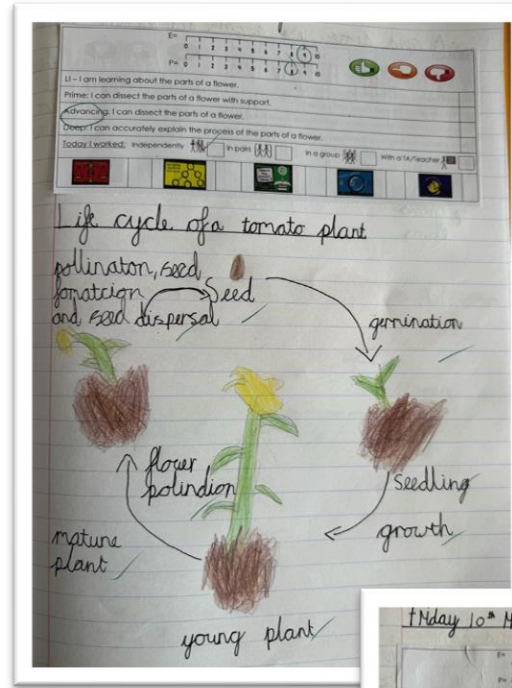 E=
0 1 2 3 4 5 6 7 8 9 10
P=
0 1 2 3 4 5 6 7 8 9 10
LI – I am learning about the parts of a flower.
Prime: I can dissect the parts of a flower with support.
Advancing: I can dissect the parts of a flower.
Deep: I can accurately explain the process of the parts of a flower.
Today I worked: Independently In pairs In a group With a TA/Teacher
Life cycle of a tomato plant
pollinaton, seed
fomatcion
and seed dispersal
Seed
germination
Seedling
growth
flower
polindion
mature
plant
young plant
Friday 10th M